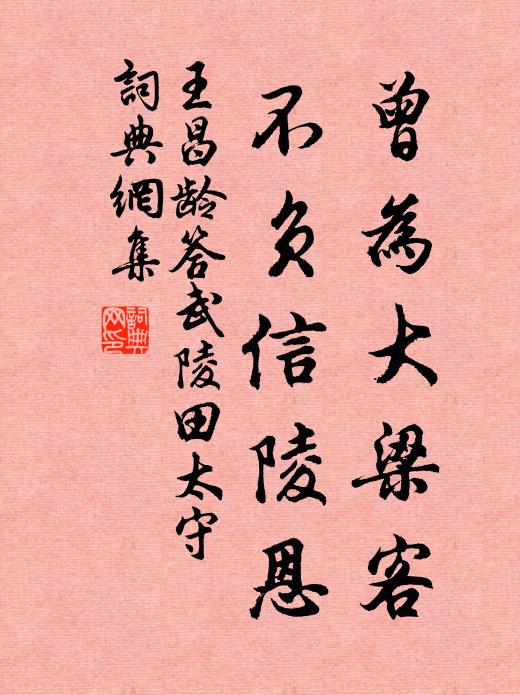 曾為大梁客
不負信陵恩
王昌龄答武陵田太守
詞典網集
詞典網印